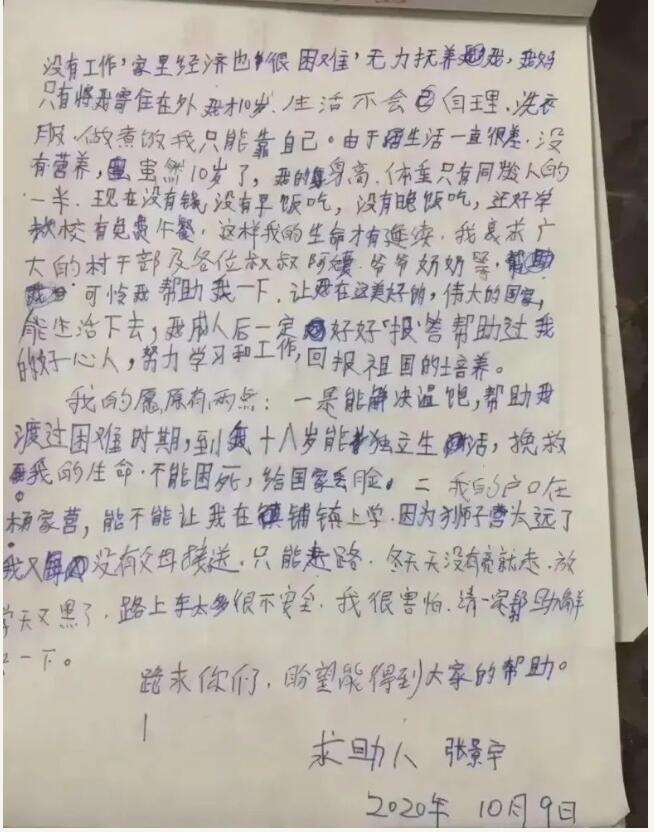 没有工作，家里经济也很困难，无力抚养我，我妈
只有将我寄住在外，我才10岁，生活不会自理，洗衣
服，做煮饭我只能靠自己。由于生活一直很差，没
有营养，虽然10岁了，我的身高、体重只有同龄人的
一半，现在没有钱，没有早饭吃，没有晚饭吃，还好学
校有免费午餐，这样我的生命才有延续，我哀求广
大的村干部及各位叔叔阿姨、爷爷奶奶等，
可怜我帮助我一下，让我在这美好的，伟大的国家，
能生活下去，我成人后一定好好报答帮助过我
的好心人，努力学习和工作，回报祖国的培养。
我的愿原有两点：一是能解决温饱，帮助我
渡过困难时期，到我十八岁能独立生活，挽救
我的生命，不能困死，给国家丢脸。二 我的户口在
杨家营，能不能让我在镇铺镇上学，因为狮子营太远了
我又没有父母接送，只能走路，冬天天没有亮就走，放
学天又黑了，路上车太多很不安全，我很害怕，请一定帮助解
一下。
跪求你们，盼望能得到大家的帮助。
求助人 张景宇
2020年 10月9日